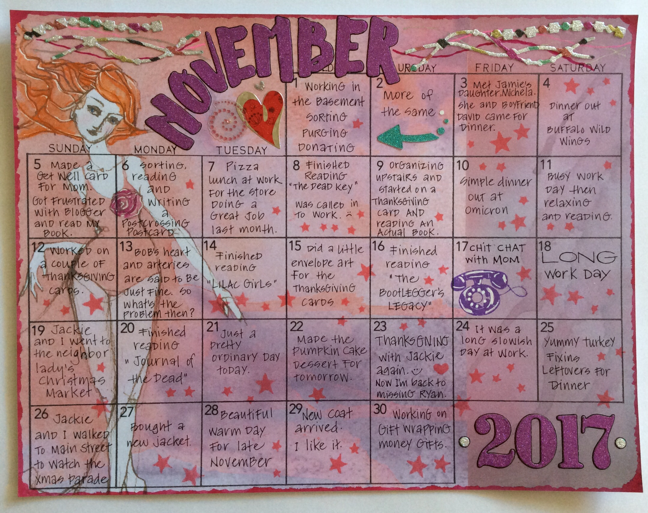 NOVEMBER
WEDNESDAY
THURSDAY
FRIDAY
SATURDAY
SUNDAY
MONDAY
TUESDAY
1 Working in
the Basement
Sorting
Purging
Donating
2 More of
the same
3 Met Jamie's
Daughter, Michela.
She and Boyfriend
David came for
Dinner.
4
Dinner out
at
Buffalo Wild
Wings
5 Made a
Get Well card
for Mom.
Got Frustrated
with Blogger
and read my
Book.
6 Sorting,
reading
and
writing
a
Postcrossing
Postcard.
7 Pizza
lunch at work
for the store
Doing a
Great Job
last month.
8 Finished
Reading
"The Dead Key"
was called in
to work.
9 Organizing
upstairs and
started on a
Thanksgiving
card AND
reading an
Actual Book.
10
Simple dinner
out at
Omicron
11
Busy work
Day then
relaxing
and reading.
12 Worked on
a couple of
Thanksgiving
cards.
13 Bob's heart
and arteries
are said to be
Just Fine. So
what's the
problem then?
14
Finished
reading
"Lilac Girls"
15 Did a little
envelope art
for the
Thanksgiving
cards
16 Finished
reading
"The
Bootlegger's
Legacy"
17 Chit Chat
with Mom
18
LONG
work Day
19 Jackie
and I went to
the neighbor
lady's
Christmas
Market
20 Finished
reading
"Journal of
the Dead"
21 Just a
pretty
ordinary Day
today.
22
Made the
Pumpkin Cake
Dessert for
tomorrow.
23
Thanksgiving
with Jackie
again.
Now I'm back to
missing Ryan.
24 It was a
long slowish
day at work.
25
Yummy Turkey
Fixins
Leftovers for
Dinner
26 Jackie
and I walked
to Main Street
to watch the
Xmas parade
27
Bought a
new jacket.
28 Beautiful
warm Day
for late
November
29 New Coat
arrived.
I like it.
30 Working on
Gift wrapping
money gifts.
2017